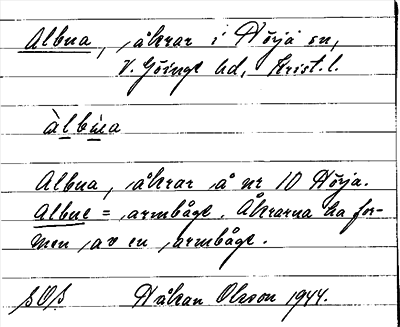 Albua, åkrar i Hörja sn,
V. Göinge hd, Krist. l.
àlbúa
Albua, åkrar å nr 10 Hörja.
Albue = armbåge. Åkrarna ha for-
men av en armbåge.
SOS Håkan Olsson 1944.